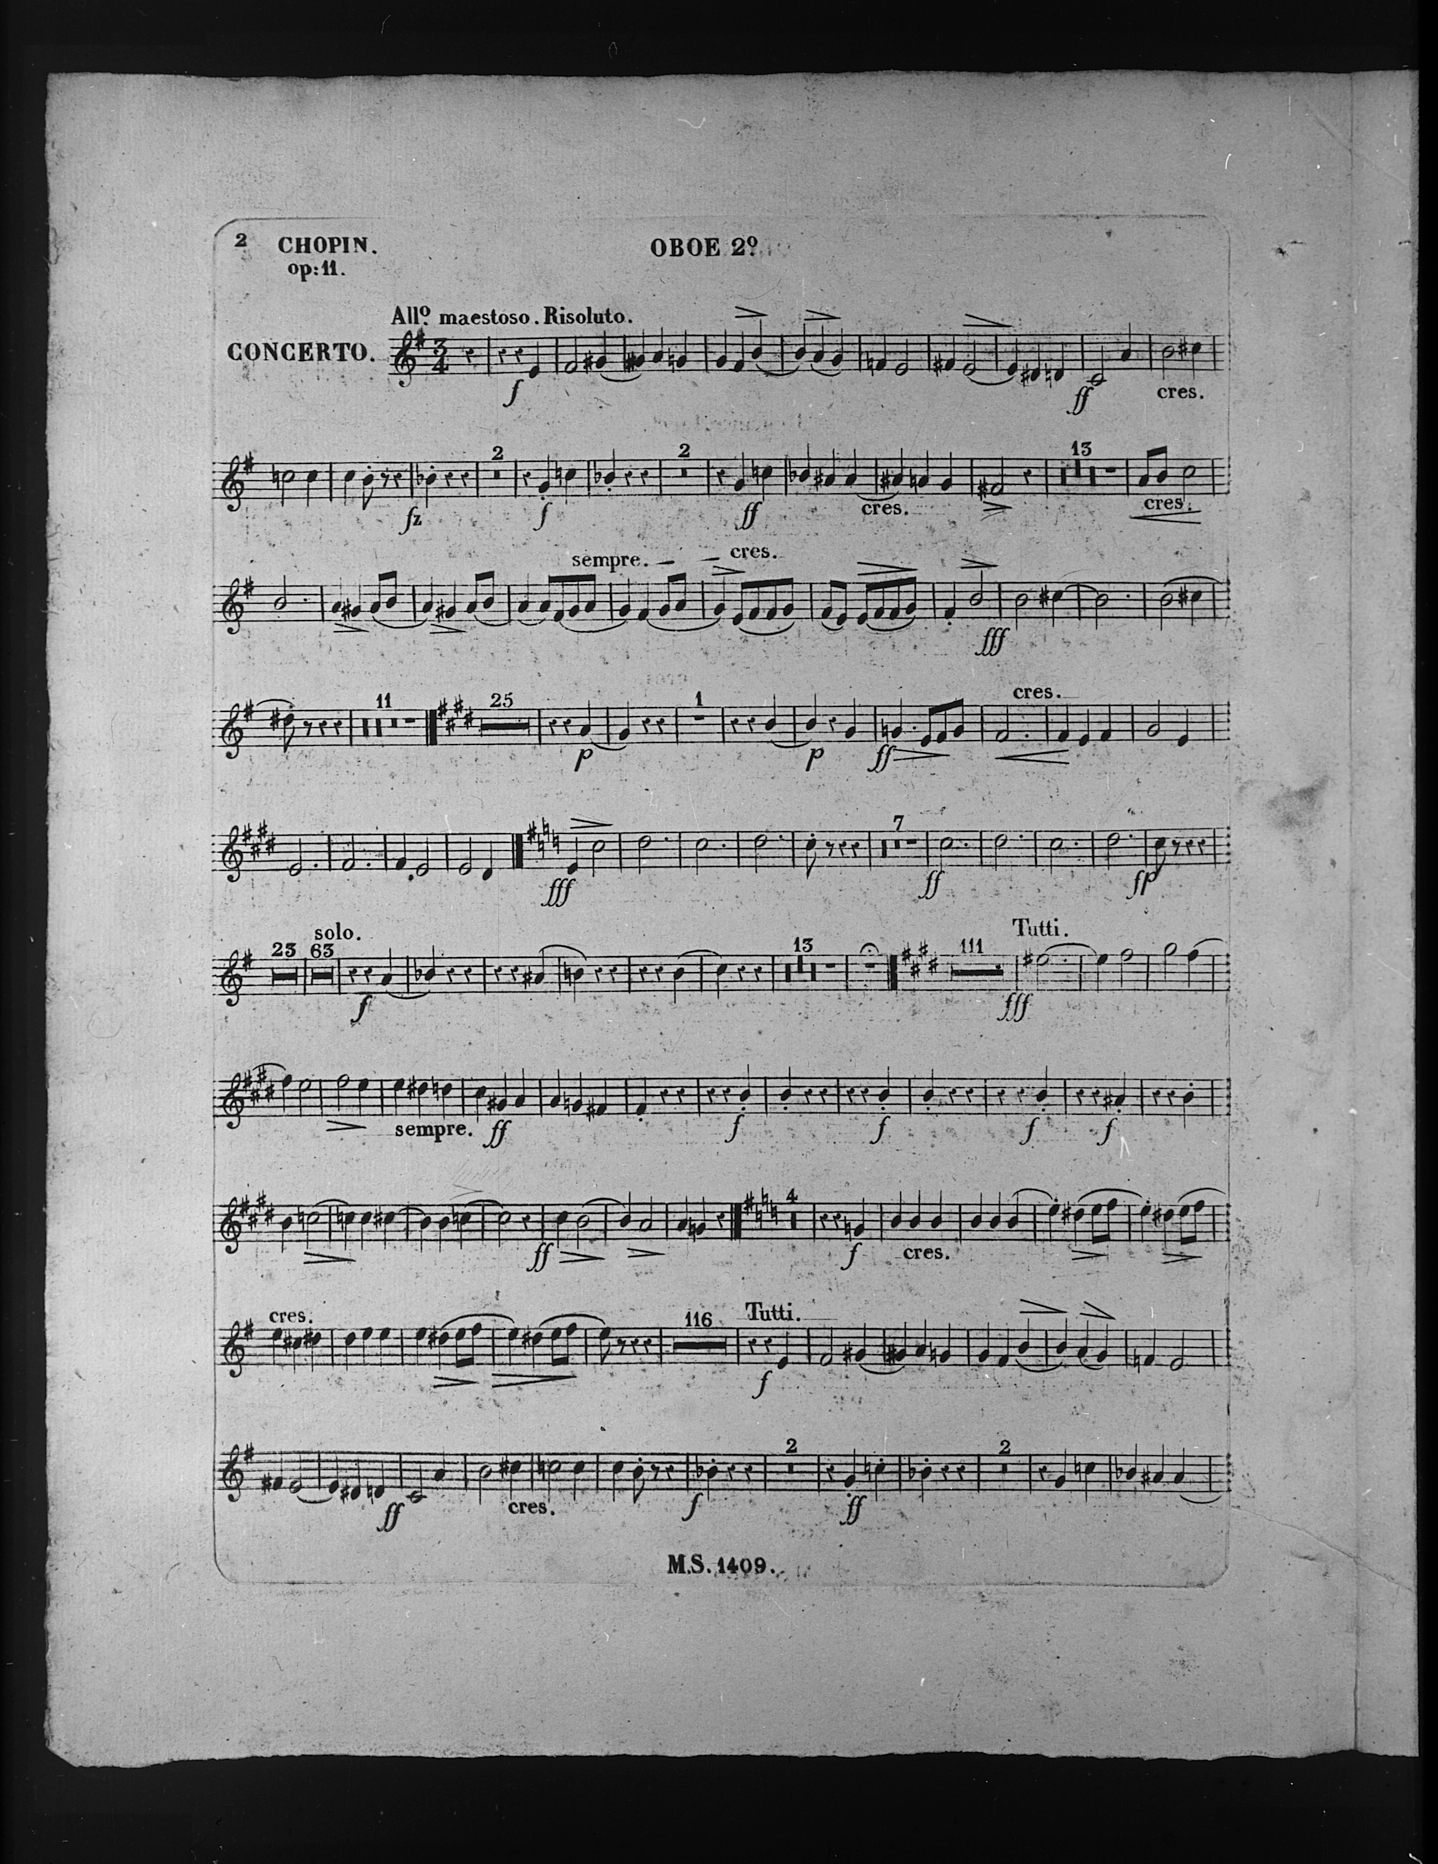 2 CHOPIN. OBOE 2º
op: 11.
Allº maestoso. Risoluto.
CONCERTO. 3 4
f ff cres.
2 2 13
fz f ff cres. cres.
sempre. cres.
fff
11 25 1 cres.
p p ff
7
fff ff fp
solo. Tutti.
23 63 13 111
f fff
sempre. ff f f f f
4
ff f cres.
cres. 116 Tutti.
f
2 2
ff cres. f ff
M.S. 1409.